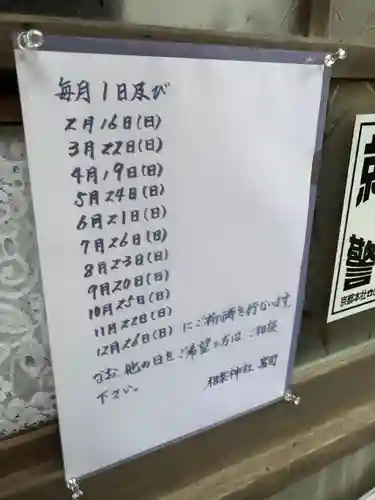 毎月1日及び
2月16日(日)
3月22日(日)
4月19日(日)
5月24日(日)
6月21日(日)
7月26日(日)
8月23日(日)
9月20日(日)
10月25日(日)
11月22日(日)
12月26日(日)にご祈祷を行ないます
なお他の日をご希望の方は、ご相談
下さい。
神社 宮司
警
京都本社